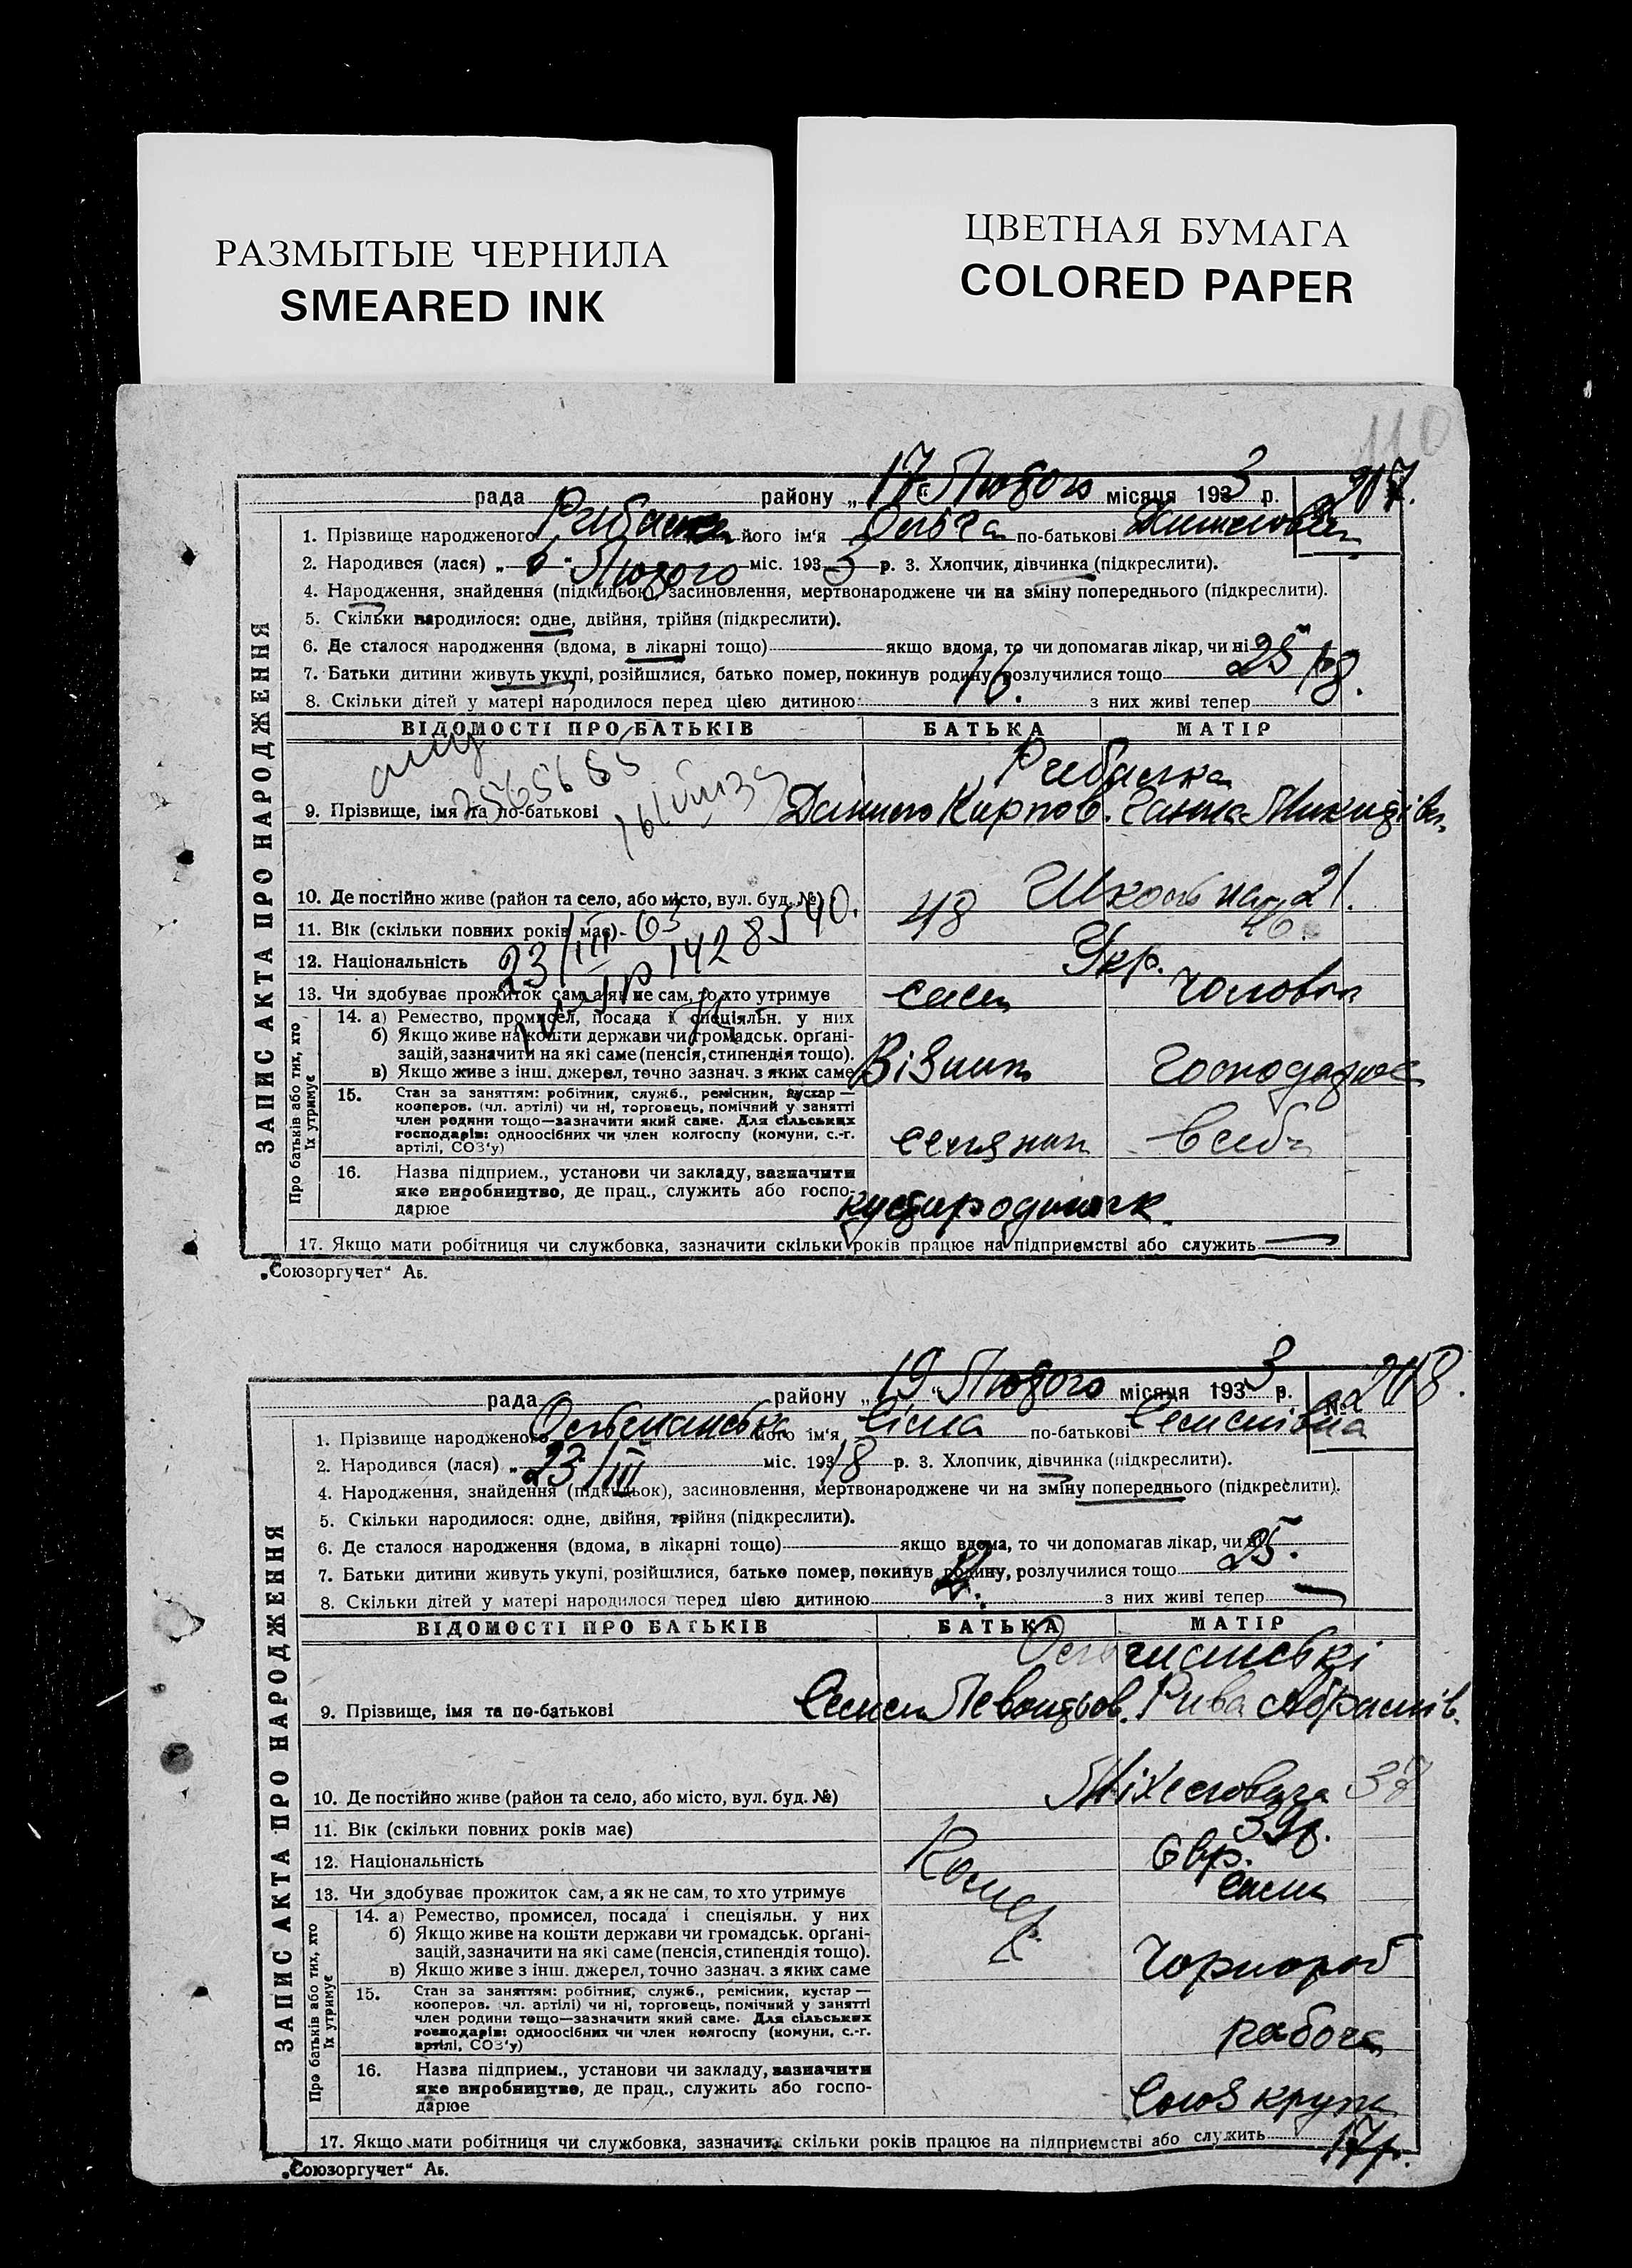 РАЗМЫТЫЕ ЧЕРНИЛА
SMEARED INK
ЦВЕТНАЯ БУМАГА
COLORED PAPER
110
рада району „17“ Лютого місяця 1933 р. 217.
ЗАПИС АКТА ПРО НАРОДЖЕННЯ
1. Прізвище народженого Рибалка його ім'я Ольга по-батькові
2. Народився (лася) „6“ Лютого міс. 1933 р. 3. Хлопчик, дівчинка (підкреслити).
4. Народження, знайдення (підкидьок), засиновлення, мертвонароджене чи на зміну попереднього (підкреслити).
5. Скільки народилося: одне, двійня, трійня (підкреслити).
6. Де сталося народження (вдома, в лікарні тощо) якщо вдома, то чи допомагав лікар, чи ні
7. Батьки дитини живуть укупі, розійшлися, батько помер, покинув родину, розлучилися тощо 25
8. Скільки дітей у матері народилося перед цією дитиною 16. з них живі тепер 8.
ВІДОМОСТІ ПРО БАТЬКІВ БАТЬКА МАТІР
Рибалка
9. Прізвище, імя та по-батькові Данило Карпов. Ганна Микитівн.
10. Де постійно живе (район та село, або місто, вул. буд. №) Школьна 21.
11. Вік (скільки повних років має) 48 40.
23/III-63
12. Національність Укр.
13. Чи здобуває прожиток сам, а як не сам, то хто утримує сам чоловік
Про батьків або тих, хто їх утримує
14. а) Ремество, промисел, посада і спеціяльн. у них
б) Якщо живе на кошти держави чи громадськ. орґані-
зацій, зазначити на які саме (пенсія, стипендія тощо).
в) Якщо живе з інш. джерел, точно зазнач. з яких саме Візник господарює
15. Стан за заняттям: робітник, служб., ремісник, кустар —
кооперов. (чл. артілі) чи ні, торговець, помічний у занятті
член родини тощо—зазначити який саме. Для сільських
господарів: одноосібних чи член колгоспу (комуни, с.-г.
артілі, СОЗ'у) селянин в себе
16. Назва підприєм., установи чи закладу, зазначити
яке виробництво, де прац., служить або госпо-
дарює
17. Якщо мати робітниця чи службовка, зазначити скільки років працює на підприємстві або служить —
„Союзоргучет“ Аб.
рада району „19“ Лютого місяця 1933 р. № 218.
ЗАПИС АКТА ПРО НАРОДЖЕННЯ
1. Прізвище народженого його ім'я Сіма по-батькові Семенівна
2. Народився (лася) „23/III міс. 1918 р. 3. Хлопчик, дівчинка (підкреслити).
4. Народження, знайдення (підкидьок), засиновлення, мертвонароджене чи на зміну попереднього (підкреслити).
5. Скільки народилося: одне, двійня, трійня (підкреслити).
6. Де сталося народження (вдома, в лікарні тощо) якщо вдома, то чи допомагав лікар, чи ні
7. Батьки дитини живуть укупі, розійшлися, батько помер, покинув родину, розлучилися тощо 25.
8. Скільки дітей у матері народилося перед цією дитиною з них живі тепер —
ВІДОМОСТІ ПРО БАТЬКІВ БАТЬКА МАТІР
9. Прізвище, імя та по-батькові Семен Рива Абрамів.
10. Де постійно живе (район та село, або місто, вул. буд. №) 37
11. Вік (скільки повних років має) 39р.
12. Національність Помер Євр.
13. Чи здобуває прожиток сам, а як не сам, то хто утримує сама
Про батьків або тих, хто їх утримує
14. а) Ремество, промисел, посада і спеціяльн. у них
б) Якщо живе на кошти держави чи громадськ. орґані-
зацій, зазначити на які саме (пенсія, стипендія тощо).
в) Якщо живе з інш. джерел, точно зазнач. з яких саме Чорнороб
15. Стан за заняттям: робітник, служб., ремісник, кустар —
кооперов. (чл. артілі) чи ні, торговець, помічний у занятті
член родини тощо—зазначити який саме. Для сільських
господарів: одноосібних чи член колгоспу (комуни, с.-г.
артілі, СОЗ'у) рабоча
16. Назва підприєм., установи чи закладу, зазначити
яке виробництво, де прац., служить або госпо-
дарює Союз
17. Якщо мати робітниця чи службовка, зазначити скільки років працює на підприємстві або служить 17р.
„Союзоргучет“ Аб.